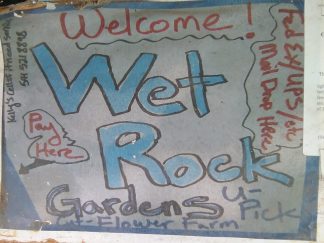 Welcome!
Wet
Rock
Gardens
U-
Pick
Cut Flower Farm
Pay
Here
FedEx/UPS/etc
Mail Drop Here:
541 521 8898